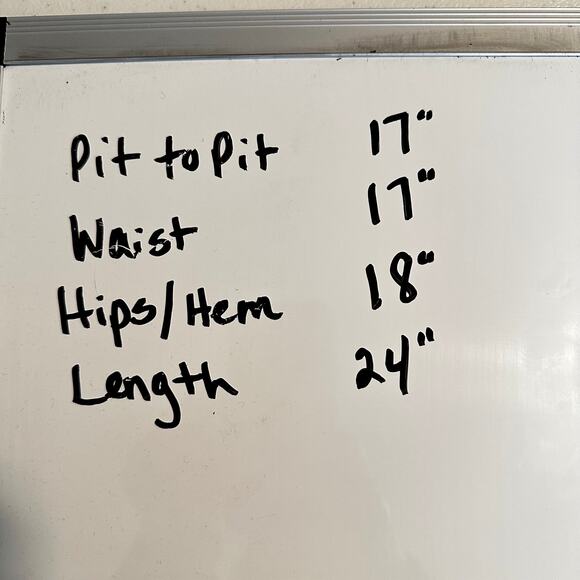 Pit to Pit 17"
Waist 17"
Hips/Hem 18"
Length 24"